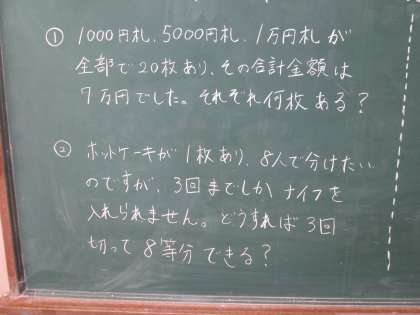 ① 1000円札、5000円札、1万円札が
全部で20枚あり、その合計金額は
7万円でした。それぞれ何枚ある?
② ホットケーキが1枚あり、8人で分けたい
のですが、3回までしかナイフを
入れられません。どうすれば3回
切って8等分できる?